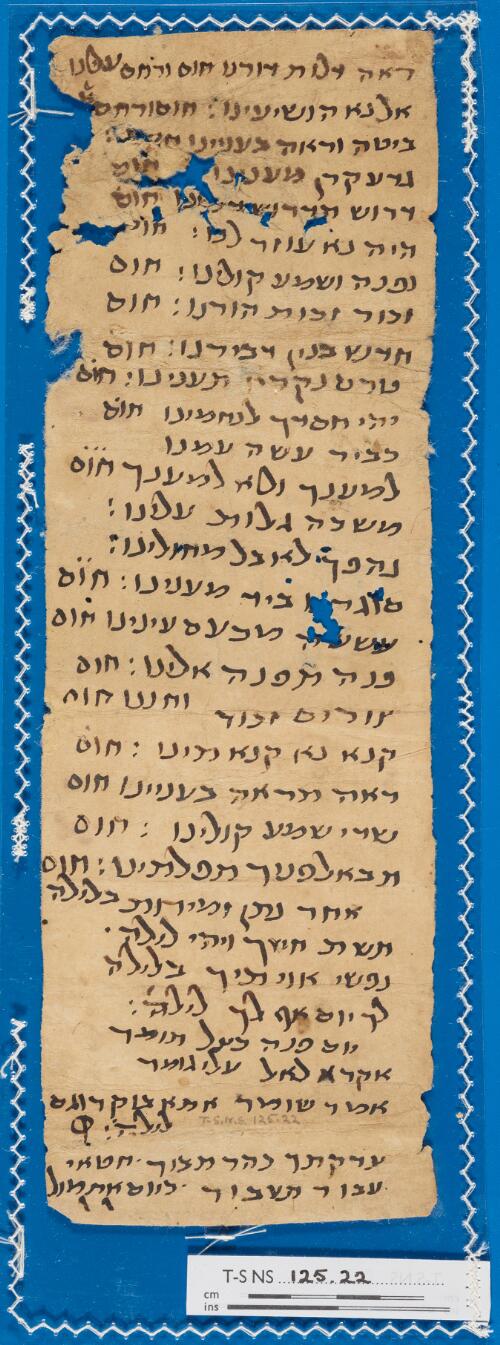 ראה דלות דורנו חוס ורחם עלינו
אלנא הושיעינו: חוס ורחם
ביטה וראה בעניינו
גרעקרן מענינו חוס
דרוש תדרוש חוס
היה נא עוזר לנו: חוס
ופנה ושמע קולינו: חוס
זכור זכות הורנו: חוס
חדש בנין דבירנו: חוס
טרם נקרא תעננו: חוס
יהי חסדך לנחמינו חוס
כביר עשה עמנו
למענך ולא למענך חוס
משכה גלות עלינו:
נהפך לאבל מחולינו:
ביר מענינו: חוס
עששה מכעס עינינו חוס
פנה תפנה אלינו: חוס
צורים זכור וחננו חוס
קנא נא קנאתינו: חוס
ראה תראה בעניינו חוס
שדי שמע קולינו: חוס
תבא לפניך תפלתינו: חוס
אחר נתן זמירות בלילה
תשת חושך ויהי לילה:
נפשי אויתיך בלילה
לך יום אף לך לילה:
יום פנה בצל תומר
אקרא לאל עלי גומר
אמר שומר אתא בוקר וגם
לילה:
T-S N.S. 125.22
צדקתך כהר תבור חטאי
עבור תשבור כיום אתמול
T-S NS 125.22
cm
ins